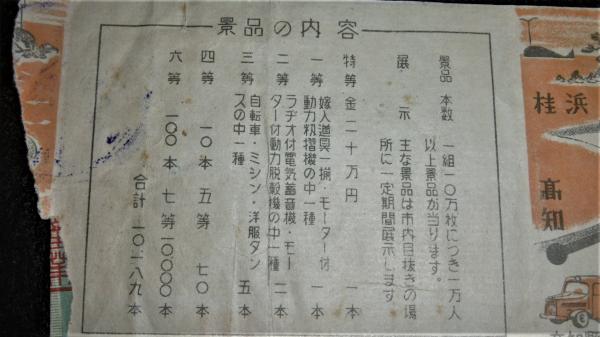 景品の内容
景品本数 一組一〇万枚につき一万人
以上景品が当ります。
展示 主な景品は市内目抜きの場
所に一定期間展示します
特等 金二十万円 一本
一等 嫁入道具一揃・モーター付
動力籾摺機の中一種 一本
二等 ラヂオ付電気蓄音機・モー
ター付動力脱穀機の中一種 二本
三等 自転車・ミシン・洋服タン
スの中一種 五本
四等 一〇本 五等 七〇本
六等 一〇〇本 七等 一〇、〇〇〇本
合計 一〇一八九本
桂浜
高知